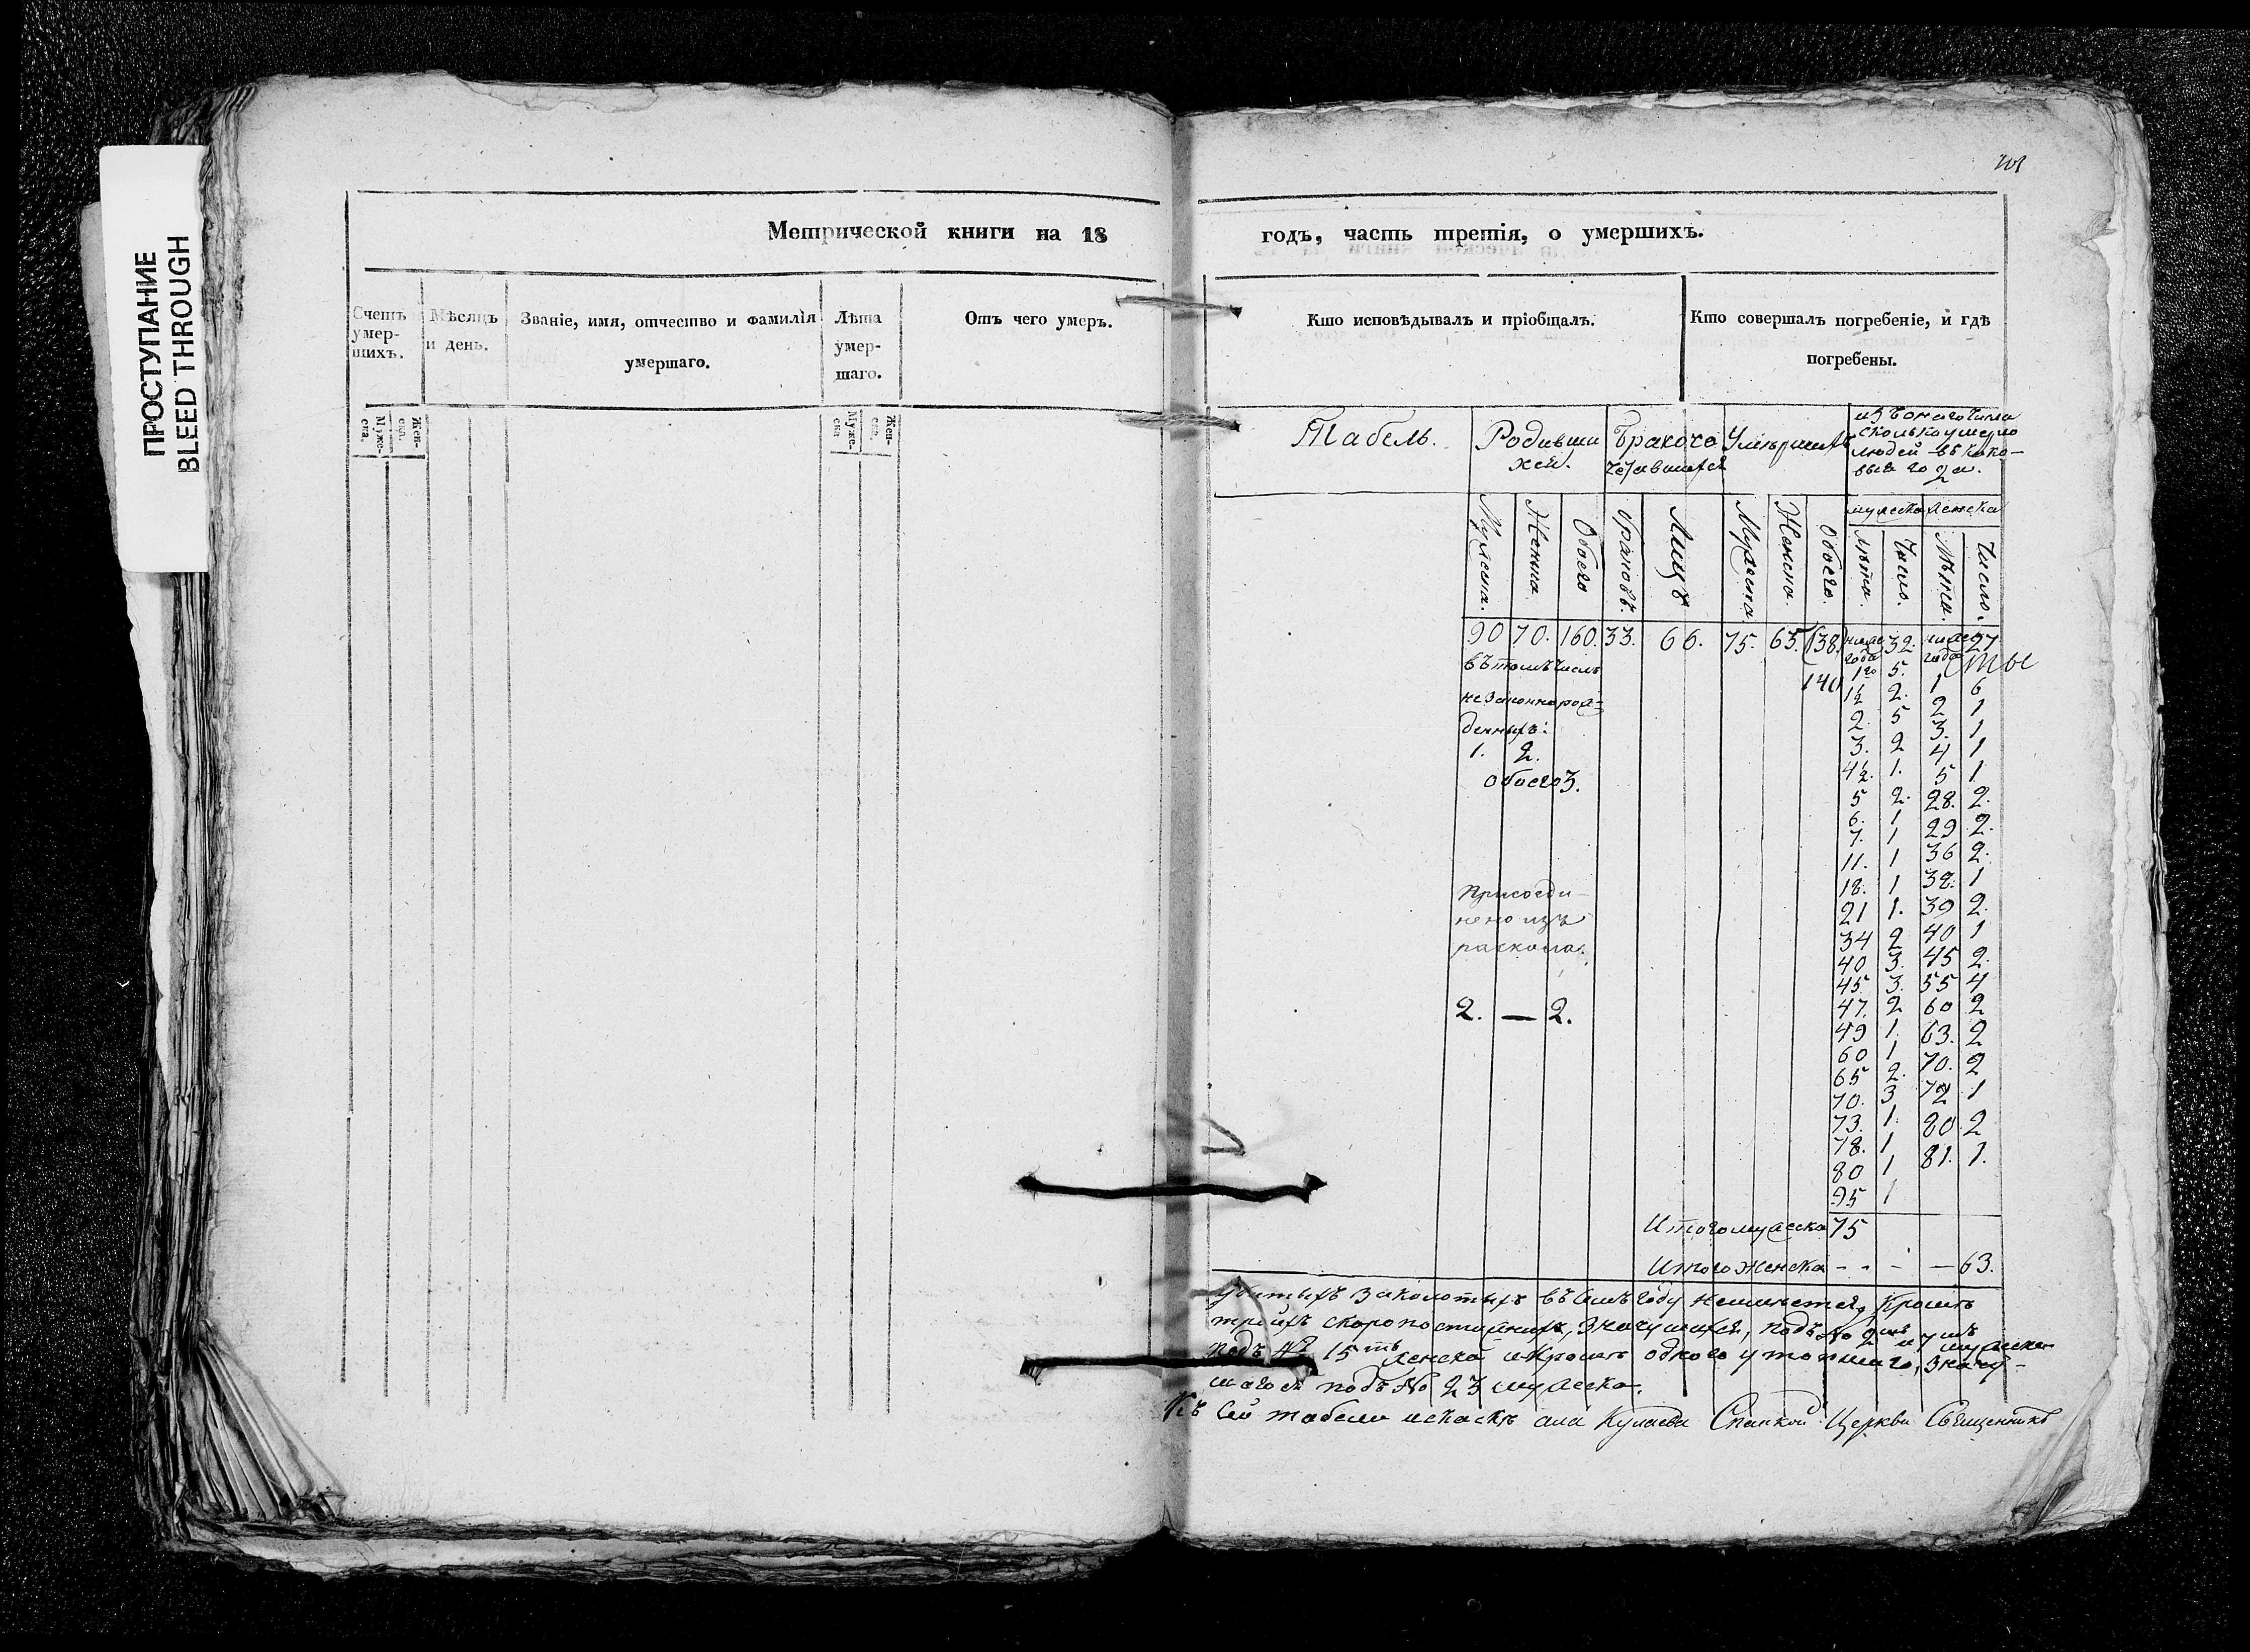 ПРОСТУПАНИЕ
BLEED THROUGH
Метрической книги на 18
Счетъ умер-шихъ.
Мѣсяцъ и день.
Званіе, имя, отчество и фамилія умершаго.
Лѣта умер-шаго.
Отъ чего умеръ.
Муже-ска.
Жен-ска.
Муже-ска
Жен-ска.
годъ, часть третія, о умершихъ.
Кто исповѣдывалъ и пріобщалъ.
Кто совершалъ погребеніе, и гдѣ погребены.
Табель.
Родивши
хся.
Бракосо
четавшихся
Умершихъ
изъ онаго числа
сколько умерло
людей въ како-
выя года.
Мужеска.
Женска
Обоего
Браковъ.
Лицъ
Мужеска
Женска.
Обоего.
мужеска женска
лѣта.
Число.
Лѣта.
Число.
90 70. 160. 33. 66. 75. 63. (138) 32. 27
года года
140
въ томъ числѣ
незаконнорож-
денныхъ:
1. 2.
обоего 3.
Присоеди-
нено изъ
раскола.
2. — 2.
1го 5.
1½ 2. 1 6
2. 5 2 1
3. 2 3. 1
4½. 1. 4 1
5 2. 5 1
6. 1 28. 2.
7. 1 29 2.
11. 1 36 2.
18. 1 38. 1
21 1. 39 2.
34 2 40 1
40 3. 45 2.
45. 3. 55 4
47. 2 60 2
49 1. 63. 2
60 1 70. 2
65 2. 72 1
70. 3 80 2
73. 1. 81. 1.
78. 1
80 1
95 1
Итого мужеска 75
Итого женска - - - — 63.
Убитыхъ заколотыхъ въ семъ году неимѣется, кромѣ
трехъ скоропостижныхъ, значущихся, подъ № 2мъ и 7мъ мужеска
подъ № 15мъ женска и кромѣ одного утопшаго, значу-
щагося подъ № 23 мужеска.
Къ сей табели села Спаской Церкви Священникъ